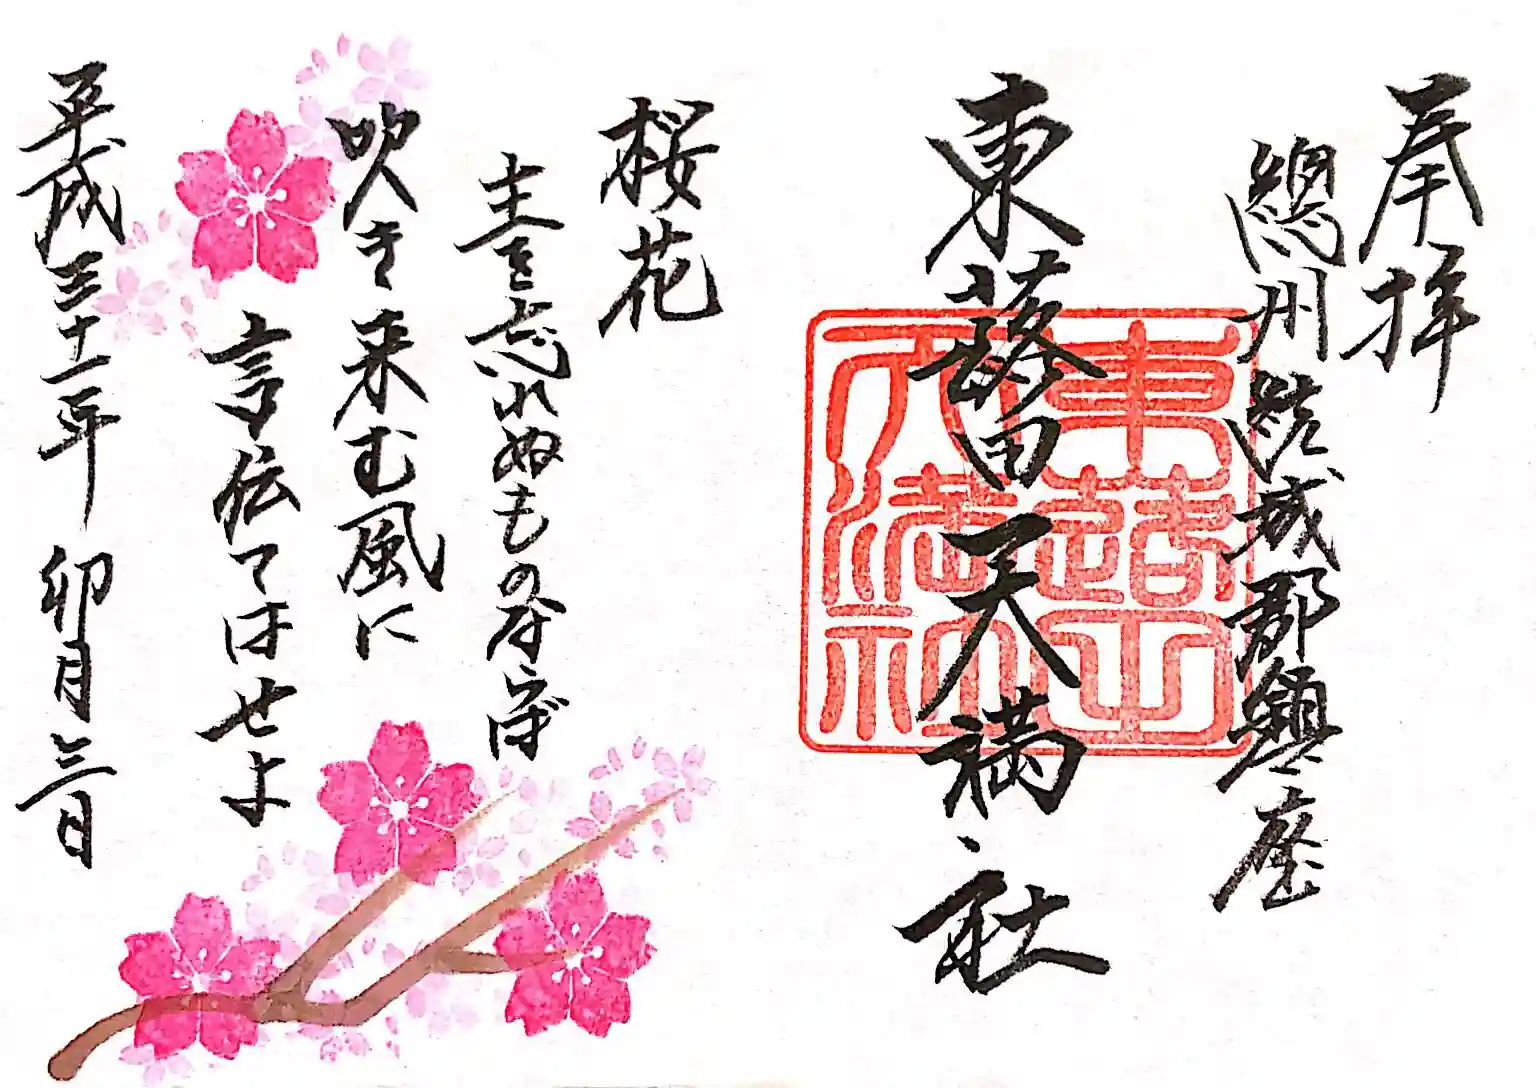 奉拝
總州結城郡鎮座
東蕗田天満社
桜花
主を忘れぬものならば
吹き来む風に
言伝てはせよ
平成三十一年 卯月三日